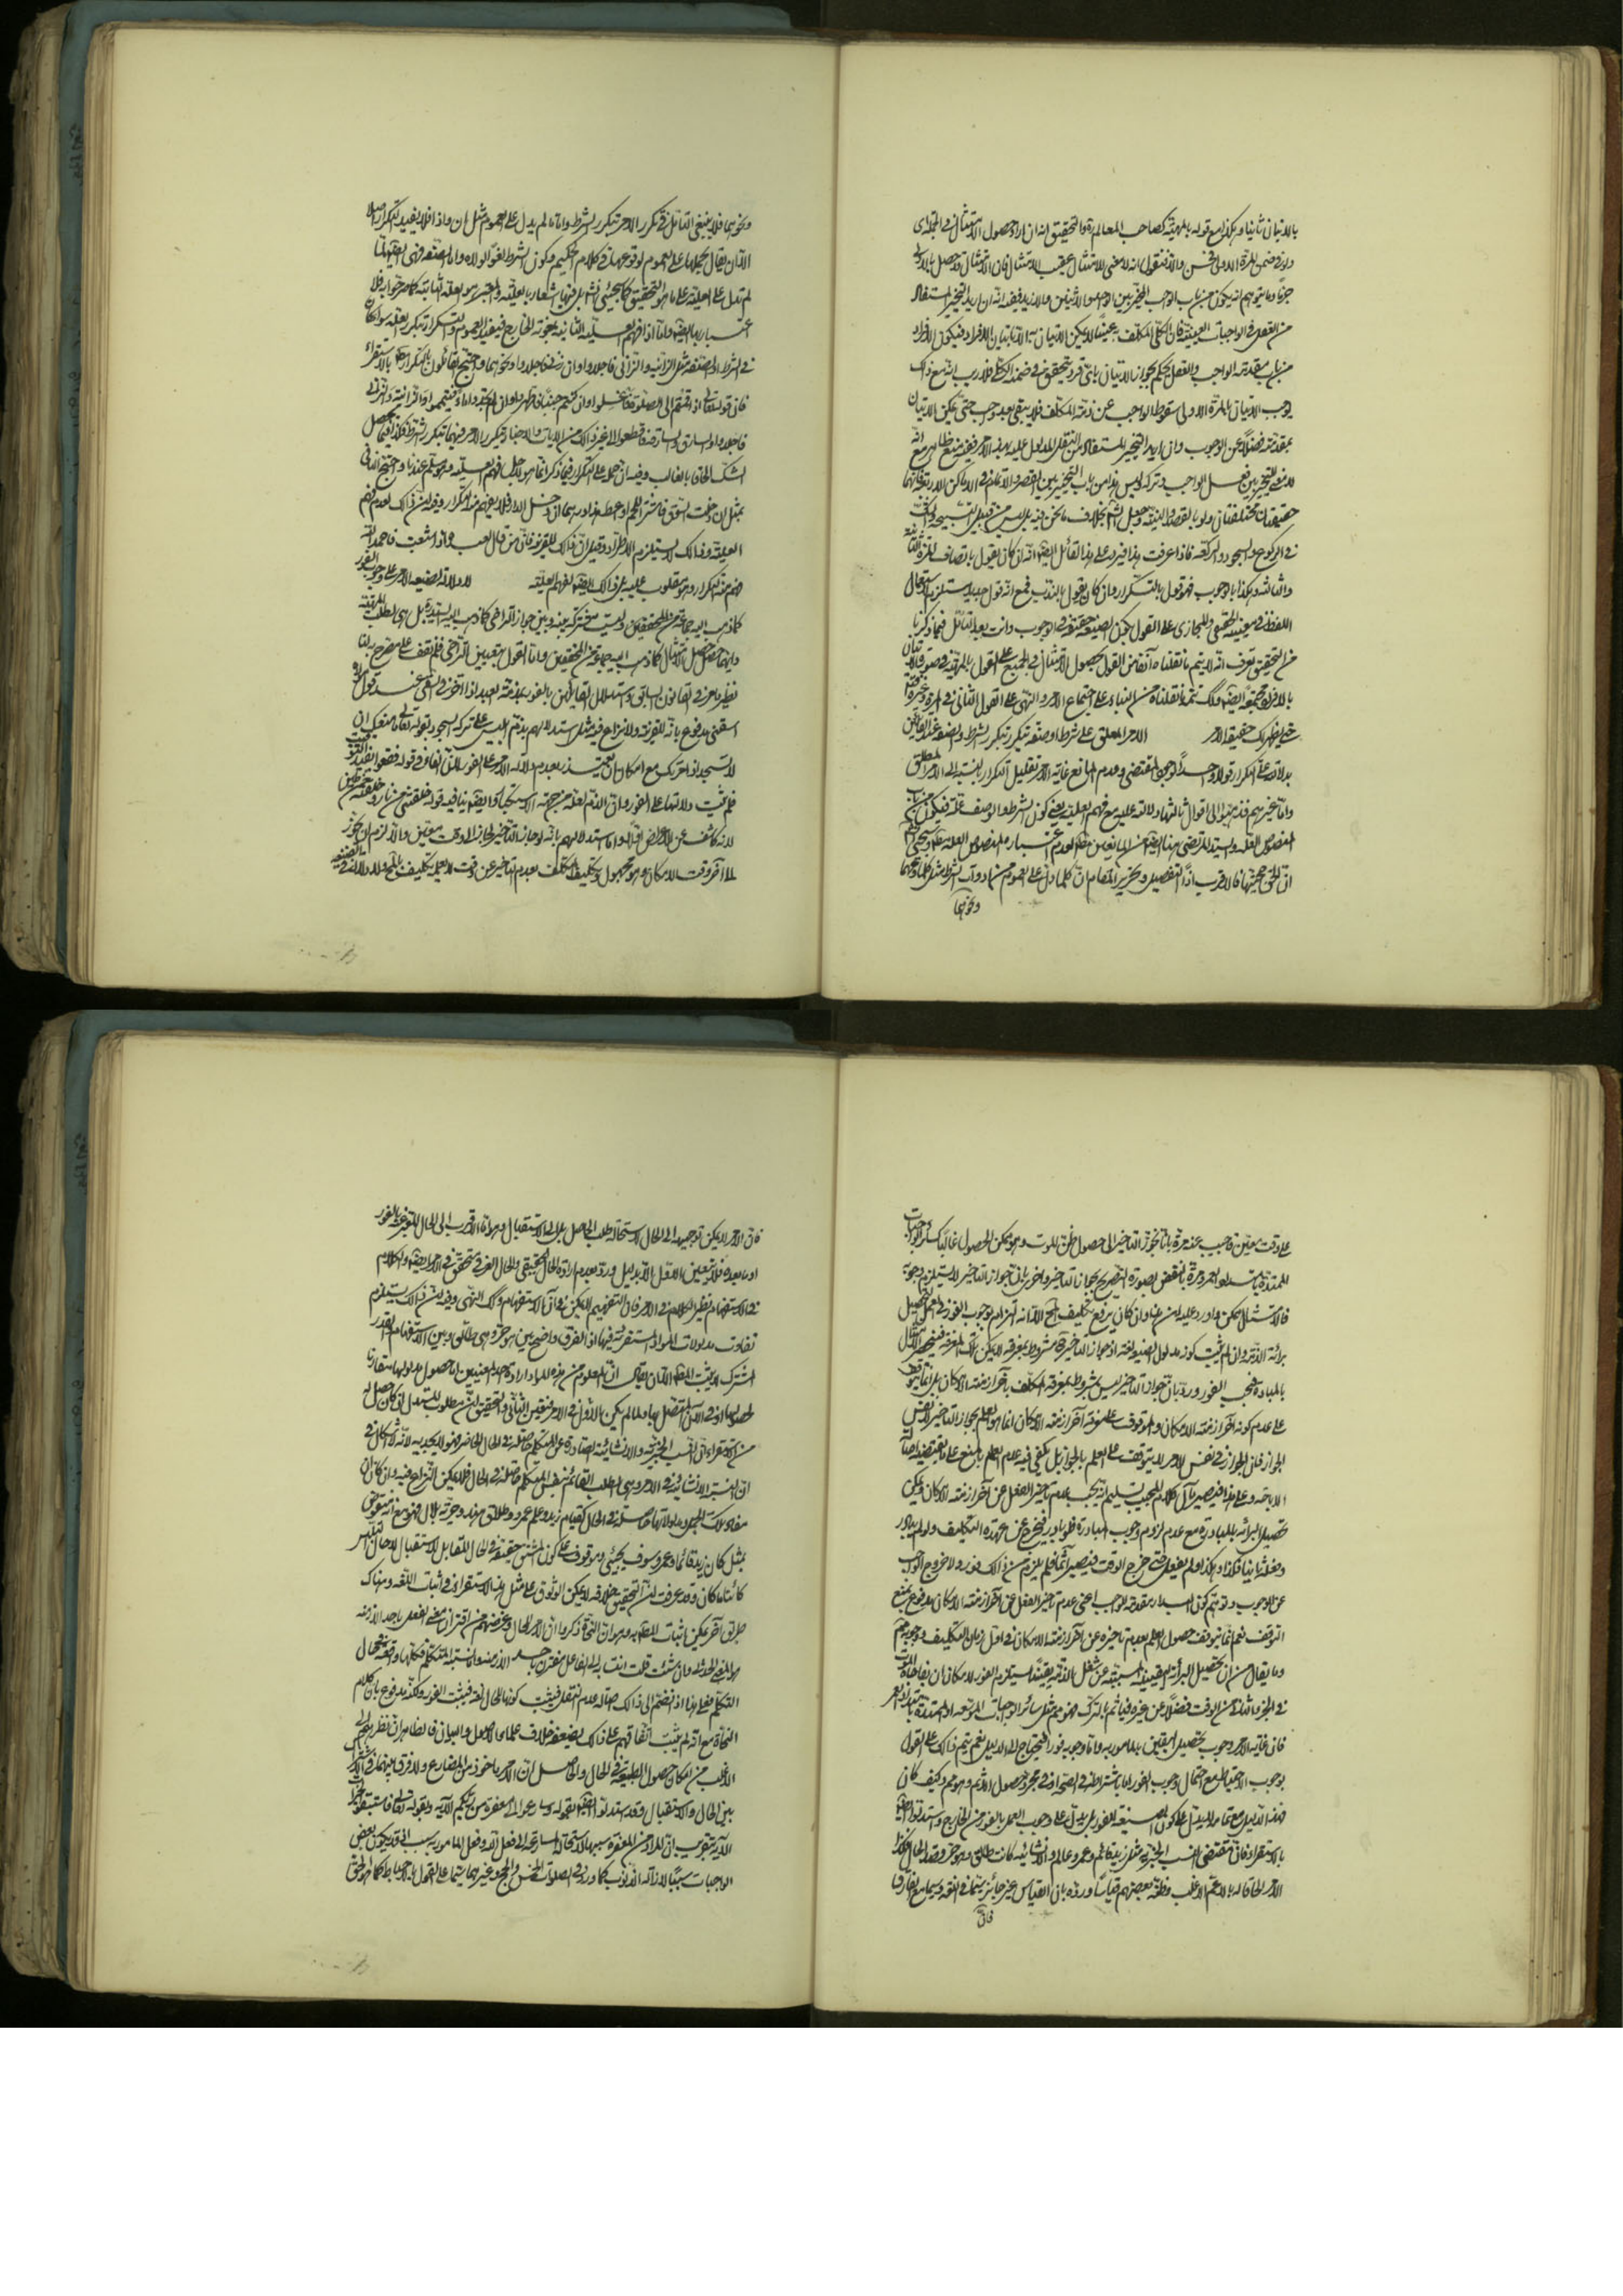 بالاتيان ثانيا وهكذا مع قوله بالمهية كصاحب المعالم ره والتحقيق انه ان اراد حصول الامتثال في الجملة اي
ولو في ضمن المرة الاولى فحسن والا فنقول انه لا معنى للامتثال عقيب الامتثال فان الامتثال قد حصل بالاولى
جزما وما يتوهم انه يكون من باب الواجب المخير بين الواحد والاثنين والازيد ففيه انه ان اريد التخيير المستفاد
من العقل في الواجبات العينية فان الكلي المكلف به عينا لا يمكن الاتيان به الا باتيان الافراد فيكون الافراد
من باب مقدمة الواجب والعقل يحكم بجواز الاتيان باي فرد يتحقق في ضمنه الكلي فلا ريب انه مع ذلك
يوجب الاتيان بالمرة الاولى سقوط الواجب عن ذمة المكلف فلا يبقى بعد وجوب حتى يمكن الاتيان
بمقدمته فضلا عن الوجوب وان اريد التخيير المستفاد من النقل المدلول عليه بهذا الامر ففيه منع ظاهر مع انه
لا معنى للتخيير بين فعل الواجب وتركه وليس هذا من باب التخيير بين القصر والاتمام في الاماكن الاربعة فانهما
حقيقتان مختلفتان ولو بالقصد والنية وجعل الشارع بخلاف ما نحن فيه بل ليس من قبيل التسبيحة والثلث
في الركوع والسجود والركعة فاذا عرفت هذا فيرد على هذا القائل ايضا انه ان كان يقول باتصاف المرة الثانية
والثالثة وهكذا بالوجوب فهو قول بالتكرار وان كان يقول بالندب فمع انه قول جديد يستلزم استعمال
اللفظ في معنييه الحقيقي والمجازي على القول بكون الصيغة حقيقة في الوجوب وانت بعد التأمل فيما ذكرنا
من التحقيق تعرف انه لا يتم ما نقلناه آنفا من القول بحصول الامتثال في الجميع على القول بالمرة في صورة الاتيان
بالافراد مجتمعة
خبر يظهر لك حقيقة الامر الامر المعلق على شرط او صفة يتكرر بتكرر الشرط والصفة عند القائلين
بدلالته على التكرار قولا واحدا لوجود المقتضي وعدم المانع غاية الامر تقليل التكرار بالنسبة الى الامر المطلق
واما غيرهم فذهبوا الى اقوال ثالثها دلالته عليه مع فهم العلية يعني كون الشرط او الوصف علة فيكون من باب
المنصوص العلة والسيد المرتضى هنا ايضا من المانعين مطلقا لعدم اعتباره المنصوص العلة
ان الحق حجيتها فالاقرب اذا التفصيل وتحرير المقام ان كلما دل على العموم من ادوات الشرط مثل كلما ومهما
ونحوهما
ونحوهما فلا ينبغي التأمل في تكرر الامر بتكرر الشرط واما ما لم يدل على العموم مثل ان واذا فلا يفيد التكرار اصلا
الا ان يقال بحملها على العموم لوقوعها في كلام الحكيم وكون الشرط لغوا لولاه واما الصفة فهي ايضا لما
لم تدل على العلية على ما هو التحقيق كما سيجيئ انش بل فيها اشعار بالعلية والمعتبر هو العلة الثابتة كما هو فلا
اعتبار بها ايضا واما اذا فهم العلية التامة بمعونة الخارج فيفيد العموم والتكرار بتكرر العلة سواء كان
في الشرط او الصفة مثل الزانية والزاني فاجلدوا وان زنى فاجلدوا ونحوهما واحتج القائلون بالتكرار مطلقا بالاستقراء
فان قوله تعالى اذا قمتم الى الصلوة فاغسلوا وان كنتم جنبا فاطهروا وان لم تجدوا ماء فتيمموا والزانية والزاني
فاجلدوا والسارق والسارقة فاقطعوا الى غير ذلك من الايات والاخبار تكرر الامر فيها بتكرر الشرط فكذا فيما يحصل
الشك الحاقا بالغالب وفيه ان حمله على التكرار فيما ذكر انما هو لاجل فهم العلية وهو مسلم عندنا واحتج النافي
بمثل ان دخلت السوق فاشتر اللحم او اعطه هذا درهما ان دخل الدار فلا يفهم منه التكرار وفيه ان ذلك لعدم فهم
العلية وذلك لا يستلزم الاطراد وقيل ان ذلك للقرينة فان من قال لعبده اذا شبعت فاحمد الله
فهم منه التكرار وهو مقلوب عليه بان ذلك ايضا لفهم العلية لا دلالة لصيغة الامر على وجوب الفور
كما ذهب اليه جماعة من المحققين وليست مشتركة بينه وبين جواز التراخي كما ذهب اليه السيد ره بل هي لطلب الماهية
وايهما حصل حصل الامتثال كما ذهب اليه جماعة من المحققين واما القول بتعيين التراخي فلم نقف على مصرح به لنا
نظير ما مر في القانون السابق واستدلال القائلين بالفور بمذمة العبد اذا اخر في السقي عند قول المولى
اسقني مدفوع بانه للقرينة ولا نزاع فيه مثل استدلالهم بذم ابليس على ترك السجود بقوله تعالى ما منعك ان
لا تسجد اذ امرتك مع امكان ان يعتذر بعدم دلالة الامر على الفور
فلم يثبت دلالتها على الفور وان الذم لعله من جهة الاستكبار وايضا ينافيه قوله خلقتني من نار وخلقته من طين
لانه كاشف عن الاعراض واما استدلالهم بانه لو جاز التاخير لجاز الى وقت معين والا لزم ان يجوز
الى آخر وقت الامكان وهو مجهول وتكليف المكلف بعدم التاخير عن وقت لا يعلمه تكليف بالمحال ولا دلالة في الصيغة
على وقت معين فاجيب عنه مرة بانا نجوز التاخير الى حصول ظن الموت وهو ممكن الحصول غالبا كسائر الواجبات
الممتدة بامتداد العمر ومرة بالنقض بصورة التصريح بجواز التاخير واخرى بان جواز التاخير لا يستلزم وجوبه
فالامتثال ممكن واورد عليه بان هذا وان كان يرفع تكليف المحال الا انه التزام بوجوب الفور في العمل لتحصيل
برائة الذمة وان لم يثبت كونه مدلول الصيغة لغة اذ جواز التاخير ح مشروط بمعرفة لا يمكن تلك المعرفة فينحصر الامتثال
بالمبادرة فيجب الفور ورد بان جواز التاخير ليس بمشروط بمعرفة المكلف بآخر ازمنة الامكان بل انما يتوقف
على عدم كونه آخر ازمنة الامكان والموقوف على معرفة آخر ازمنة الامكان انما هو العلم بجواز التاخير لا نفس
الجواز فان الجواز في نفس الامر لا يتوقف على العلم بالجواز بل يكفي فيه عدم العلم بالمنع على ما يقتضيه اصالة
الاباحة وعلى هذا فيصير مآل كلام المجيب تسليم انه يجب عدم تاخير الفعل عن آخر ازمنة الامكان ويمكن
تحصيل البرائة بالمبادرة مع عدم لزوم وجوب المبادرة فلو بادر فيخرج عن عهدة التكليف ولو لم يبادر
وفعله ثانيا فكذا وهكذا ولو لم يفعل حتى خرج الوقت فيصير آثما فلم يلزم من ذلك فور ولا خروج الواجب
عن الوجوب وتوهم كون المبادرة مقدمة للواجب اعني عدم تاخير الفعل عن آخر ازمنة الامكان مدفوع بمنع
التوقف نعم انما يتوقف حصول العلم بعدم تاخيره عن آخر ازمنة الامكان في اول زمان التكليف ووجوبه مم
وما يقال من ان تحصيل البرائة اليقينية المسببة عن شغل الذمة يقينا يستلزم الفور لامكان ان يفاجئه الموت
في الجزء الثاني من الوقت فضلا عن غيره فيأثم بالترك فهو مثل سائر الواجبات الموسعة او الممتدة بامتداد العمر
فان غاية الامر وجوب تحصيل اليقين بالمامور به واما وجوبه فورا فيحتاج الى الدليل نعم يتم ذلك على القول
بوجوب الاحتياط مع احتمال وجوب الفور اما باشتراطه في الصحة او في مجرد حصول الاثم وهو مم وكيف كان
فهذا الدليل مع تمامه لا يدل على كون الصيغة للفور بل يدل على وجوب العمل بالفور من الخارج واستدلوا ايضا
بالاستقراء فان مقتضى النسب الخبرية مثل زيد قائم وعمرو عالم والانشائية كانت طالق وهو حر وقصد الحال فكذا
الامر الحاقا له بالاعم الاغلب وظنه بعضهم قياسا ورده بان القياس غير جائز سيما في اللغة وسيما مع الفارق
فان
فان الامر لا يمكن توجيهه الى الحال لاستحالة طلب الحاصل بل الى الاستقبال وهو اما الاقرب الى الحال المعبر عنه بالفور
او ما بعده فلا يتعين الاول الا بدليل ورد بعدم ارادة الحال الحقيقي والحال العرفي متحقق في الامر ايضا والكلام
في الاستفهام نظير الكلام في الامر فان التفهيم لا يمكن في آن الاستفهام وكذلك النهي وفيه ان ذلك يستلزم
تفاوت مدلولات المواد المستقرئة فيها اذ الفرق واضح بين هو حر وهي طالق وبين الاستفهام والقدر
المشترك لا يثبت المطلوب الا ان يقال ان المعلوم من هذه الموارد ارادة احد المعنيين اما حصول مدلولها مقارنا
لحصولها او في الآن المتصل بها ولما لم يكن الاول في الامر فتعين الثاني والتحقيق ان مطلوب المستدل ان كان حصل له
من الاستقراء ان النسب الخبرية والانشائية الصادرة عن المتكلم حاصلة في الحال الحاضر فهو لا يجديه لانه لا اشكال في
ان النسبة الانشائية في الامر وهي الطلب القائم بنفس المتكلم حاصلة في الحال فلا يمكن النزاع فيه وان كان ان
مفاد تلك الجمل ومدلولاتها حاصلة في الحال كقيام زيد وعلم عمرو وطلاق هند وحرية بلال فهو مع انه منقوض
بمثل كان زيد قائما وعمرو سوف يجيئ وموقوف على كون المشتق حقيقة في الحال المقابل للاستقبال لا حال التلبس
كائنا ما كان وقد عرفت ان التحقيق خلافه لا يمكن الوثوق على مثل هذا الاستقراء في اثبات اللغة وهناك
طريق آخر يمكن اثبات المطلوب به وهو ان النحاة ذكروا ان الامر للحال وغرضهم من اقتران معنى الفعل باحد الازمنة
هو المعنى الحدثي وان شئت قلت انتسابه الى الفاعل مقترن باحد الازمنة واما نسبة المتكلم فكلها واقعة في حال
التكلم فعلى هذا اذا انضم الى ذلك اصالة عدم النقل فيثبت كونها للحال لغة فيثبت الفور ولكنه مدفوع بان كلام
النحاة مع انه لم يثبت اتفاقهم على ذلك يضعفه خلاف علماء الاصول والبيان فالظاهر ان نظرهم الى
الاغلب من امكان حصول الطبيعة في الحال والحاصل ان الامر ماخوذ من المضارع ولا فرق بينهما في اشتراك
بين الحال والاستقبال وقد استدلوا ايضا بقوله وسارعوا الى مغفرة من ربكم الآية وبقوله تعالى فاستبقوا الخيرات
الآية بتقريب ان المراد من المغفرة سببها لاستحالة المسارعة الى فعل الله وفعل المامور به سبب اذ قد يكون بعض
الواجبات سببا لازالة الذنوب كما ورد في الصلوات الخمس والحج وغيرهما سيما على القول بالاحباط كما هو الحق